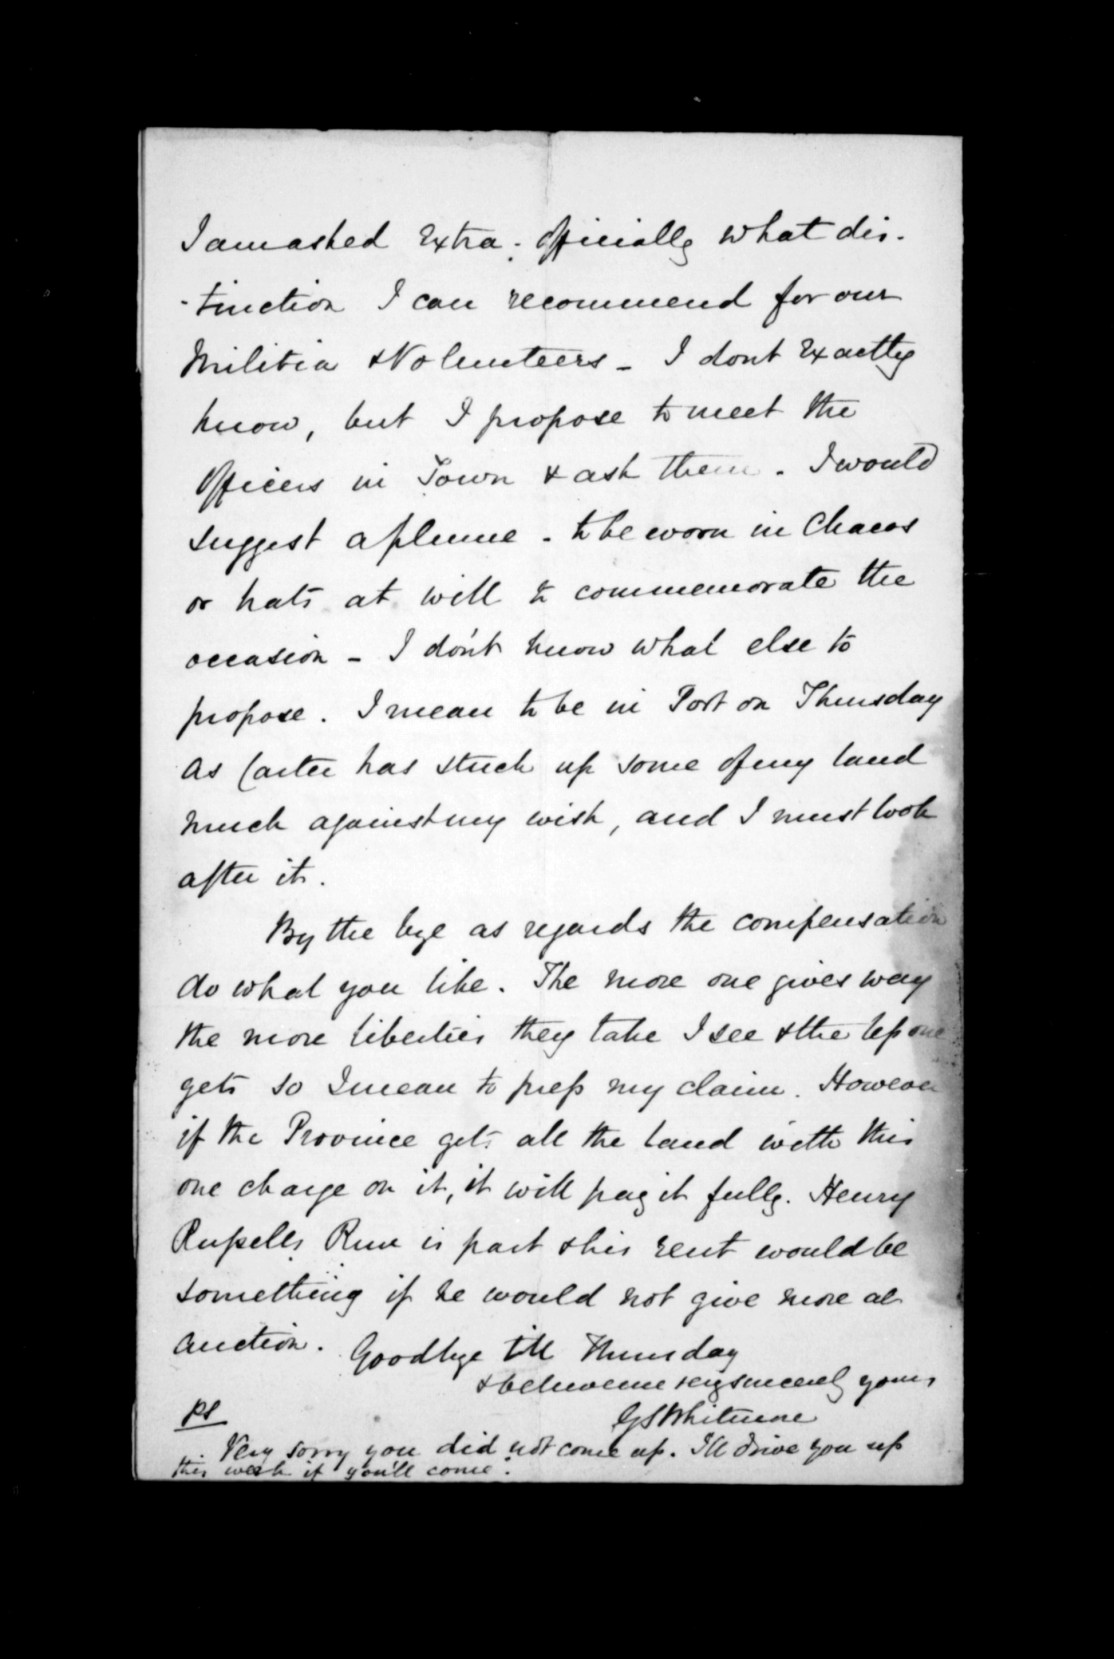 I am asked extra-officially what dis-
-tinction I can recommend for our
Militia & Volunteers - I dont exactly
know, but I propose to meet the
officers in Town & ask them. I would
suggest a plume - to be worn in Chacos
or hats at will to commemorate the
occasion - I don't know what else to
propose. I mean to be in Port on Thursday
as Carter has stuck up some of my land
much against my wish, and I must look
after it.
By the bye as regards the compensation
do what you like. The more one gives way
the more liberties they take I see & the less one
gets so I mean to press my claim. However
if the Province gets all the land with this
one charge on it, it will pay it fully. Henry
Russells Run is part & his rent would be
something if he would not give more at
auction. Goodbye till Thursday
& believe me very sincerely yours
GS Whitmore
PS
Very sorry you did not come up. I'll drive you up
this week if you'll come.